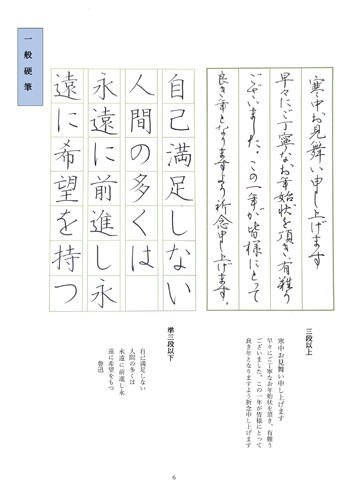 寒中お見舞い申し上げます
早々にご丁寧なお年始状を頂き、有難う
ございました。この一年が皆様にとって
良き年となりますよう祈念申し上げます。
自己満足しない
人間の多くは
永遠に前進し永
遠に希望を持つ
一般硬筆
三段以上
寒中お見舞い申し上げます
早々にご丁寧なお年始状を頂き、有難う
ございました。この一年が皆様にとって
良き年となりますよう祈念申し上げます
準三段以下
自己満足しない
人間の多くは
永遠に前進し永
遠に希望をもつ
魯迅
6